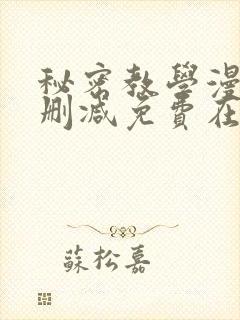 秘密教學漫
刪減免費在
蘇松嘉